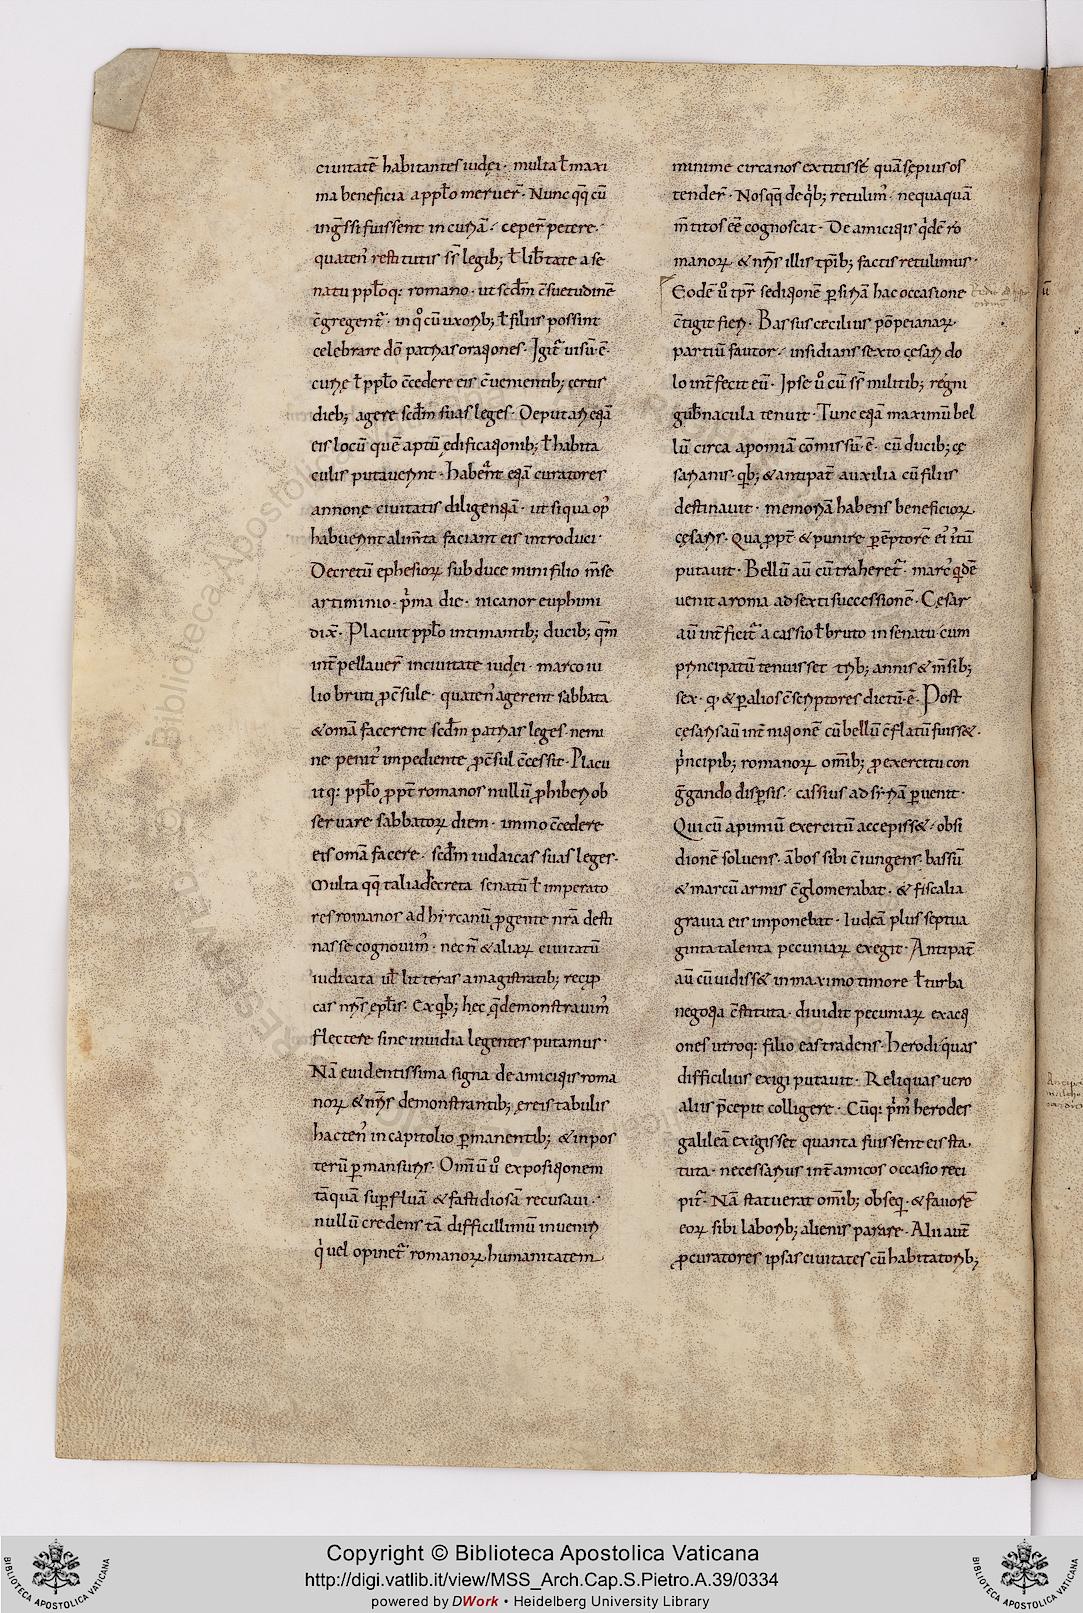 ciuitatē habitantes iudęi · multa ł maxi
ma beneficia a ppło meruer̄ · Nunc qq̄ cū
ingr̄ssi fuissent in curiā · ceper̄ petere ·
quaten᾽ restitutis ss̄ legib; ł lib̄tate a se
natu ppłoq: romano · ut scd̄m c̄suetudinē
c̄gregent᷑ · in qͦ cū uxorib; ł filiis possint
celebrare dō patrias orationes · Igit᷑ uisū · ē ·
curię ł ppło c̄cedere eis c̄uenientib; certis
dieb; agere scd̄m suas leges · Deputari etiā
eis locū quē aptū ędificationib; ł habita
culis putauerint · haber̄nt etiā curatores
annonę ciuitatis diligentiā · ut si qua op᾽
habuerint alim̄ta faciant eis introduci ·
Decretū ephesioꝝ sub duce mini filio m̄se
artiminio · p̄ma die · nicanor euphimi
dix̄ · Placuit ppło intimantib; ducib; qm̄
int̄pellauer̄ in ciuitate iudęi · marco iu
lio bruti ꝓc̄sule · quaten᾽ agerent sabbata
&omā facerent scd̄m patrias leges · nemi
ne penit᾽ impediente ꝓc̄sul c̄cessit · Placu
itq: ppło ꝓpt̄ romanos nullū ꝓhiberi ob
seruare sabbatoꝝ diem · immo c̄cedere
eis omā facere · scd̄m iudaicas suas leges ·
Multa qq̄ talia decreta senatū ł imperato
res romanos ad hircanū ꝓ gente nr̄a desti
nasse cognouim᾽ · nec n̄ & aliaꝝ ciuitatū
iudicata uł litteras a magistratib; recip
cas nr̄is epłis · Ex qb; hęc q̄ demonstrauim᾽
flectere sine inuidia legentes putamus ·
Nā euidentissima signa de amicitiis roma
noꝝ & nr̄is demonstrantib; ęreis tabulis
hacten᾽ in capitolio ꝑmanentib; & in pos
terū ꝑmansuris · Om̄iū u͛o expositionem
tāquā suꝑfluā & fastidiosā recusaui ·
nullū credens tā difficillimū inueniri
q᷑ uel opinet᷑ romanoꝝ humanitatem
minime circa nos extitisse quā sępius os
tender̄ · Nos qq̄ de qib; retulim᾽ · nequaquā
m̄titos eē cognoscat · De amicitiis q̄dē ro
manoꝝ & nr̄is illis tp̄ib; factis retulimus ·
Eodē u͛o tp̄r seditionē ꝑ siriā hac occasione
c̄tigit fieri · Bassus cecilius pōpeianaꝝ
partiū fautor · insidians sexto cęsari do
lo int̄fecit eū · Ipse u͛o cū ss̄ militib; regni
gub̄nacula tenuit · Tunc etiā maximū bel
lū circa apomiā cōmissū · ē · cū ducib; cę
sarianis · qb; & antipat̄ auxilia cū filiis
destinauit · memoriā habens beneficioꝝ
cęsaris · Qua ꝓpt̄ & punire ꝑēptorē ei᾽ iustū
putauit · Bellū aū cū traheret᷑ · marc᾽ q̄dē
uenit a roma ad sexti successionē · Cęsar
aū int̄ficit᷑ a cassio ł bruto in senatu · cum
principatū tenuisset trib; annis & m̄sib;
sex · qđ & ꝑ alios c̄scriptores dictū · ē · Post
cęsaris aū int̄nitionē cū bellū c̄flatū fuiss& ·
p̄ncipib; romanoꝝ omīb; ꝓ exercitu con
ḡgando disꝑsis · cassius ad siriā ꝑuenit ·
Qui cū apimiū exercitū accepiss& · obsi
dionē soluens · ābos sibi c̄iungens · bassū
& marcū armis c̄glomerabat · & fiscalia
grauia eis imponebat · Iudęā plus septua
ginta talenta pecuniaꝝ exegit · Antipat̄
aū cū uidiss& in maximo timore ł turba
negotia c̄stituta · diuidit pecuniaꝝ exacti
ones utroq: filio eas tradens · herodi quas
difficilius exigi putauit · Reliquas uero
aliis p̄cepit colligere · Cūq: p̄m᾽ herodes
galileā exigisset quanta fuissent eis sta
tuta · necessarius int̄ amicos occasio reci
pit᷑ · Nā statuerat omīb; obseq · & fauorē
eoꝝ sibi laborib; alienis parare · Alii aut̄
ꝓcuratores ipsas ciuitates cū habitatorib;
Copyright © Biblioteca Apostolica Vaticana
http://digi.vatlib.it/view/MSS_Arch.Cap.S.Pietro.A.39/0334
powered by DWork • Heidelberg University Library
BIBLIOTECA APOSTOLICA VATICANA
BIBLIOTECA APOSTOLICA VATICANA